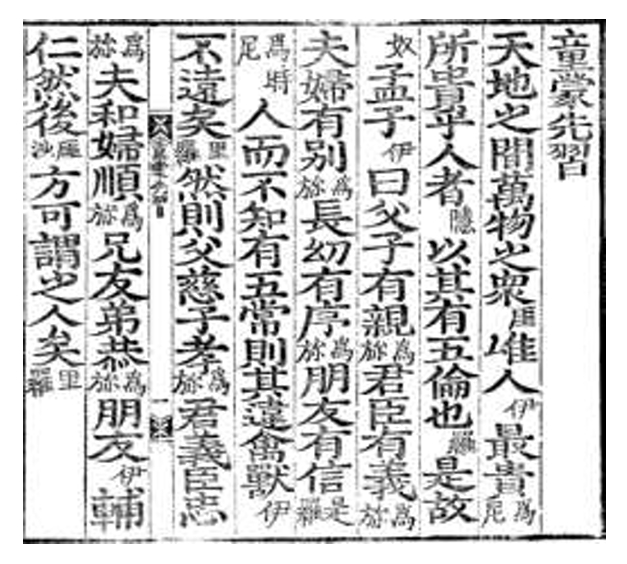 童蒙先習
天地之間萬物之衆厓唯人伊最貴爲尼
所貴乎人者隱以其有五倫也羅是故
奴孟子伊曰父子有親爲旀君臣有義爲旀
夫婦有別爲旀長幼有序爲旀朋友有信是羅
爲時尼人而不知有五常則其違禽獸伊
不遠矣里羅然則父慈子孝爲旀君義臣忠
爲旀夫和婦順爲旀兄友弟恭爲旀朋友伊輔
仁然後厓沙方可謂之人矣里羅